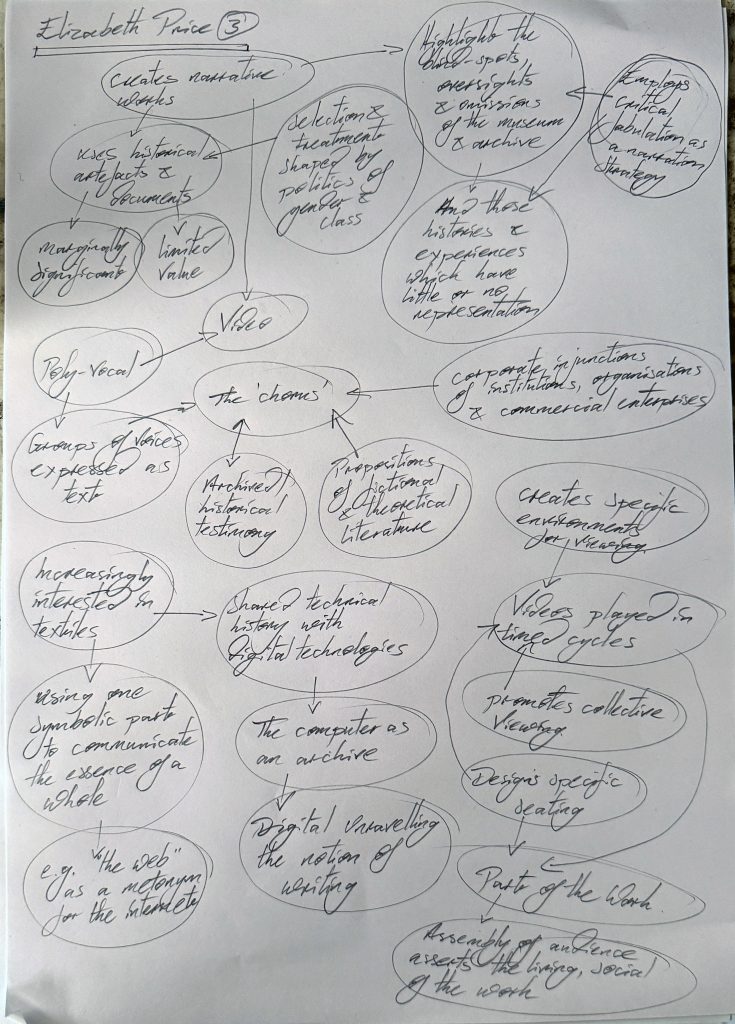 Elizabeth Price ③
Creates narrative
works
Highlights the
blind-spots,
oversights
& omissions
of the museum
& archive
Employs
Critical
fabulation as
a narration
strategy
Selection &
treatment
shaped by
politics of
gender &
class
Uses historical
artefacts &
documents
Marginally
significant
limited
value
And those
histories &
experiences
which have
little or no
representation
Video
Poly-vocal
The 'chorus'
Corporate injunctions
of institutions, organisations
& commercial enterprises
Groups of voices
expressed as
text
Archived/
historical
testimony
Propositions
of fictional
& theoretical
literature
Creates specific
environments
for viewing
Increasingly
interested in
textiles
Shared technical
history with
Digital technologies
Videos played in
timed cycles
promotes collective
viewing
Using one
symbolic part
to communicate
the essence of a
whole
The computer as
an archive
Designs specific
seating
Digital unravelling
the notion of
writing
e.g. "the web"
as a metonym
for the internet
Part of the work
Assembly of audience
asserts the living, social
of the work